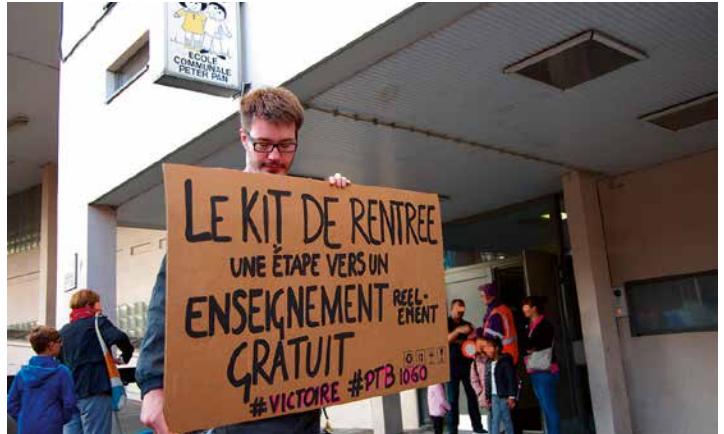 ECOLE
COMMUNALE
PETER PAN
LE KIT DE RENTREE
UNE ÉTAPE VERS UN
ENSEIGNEMENT REEL-
EMENT
GRATUIT
#VICTOIRE #PTB 1060